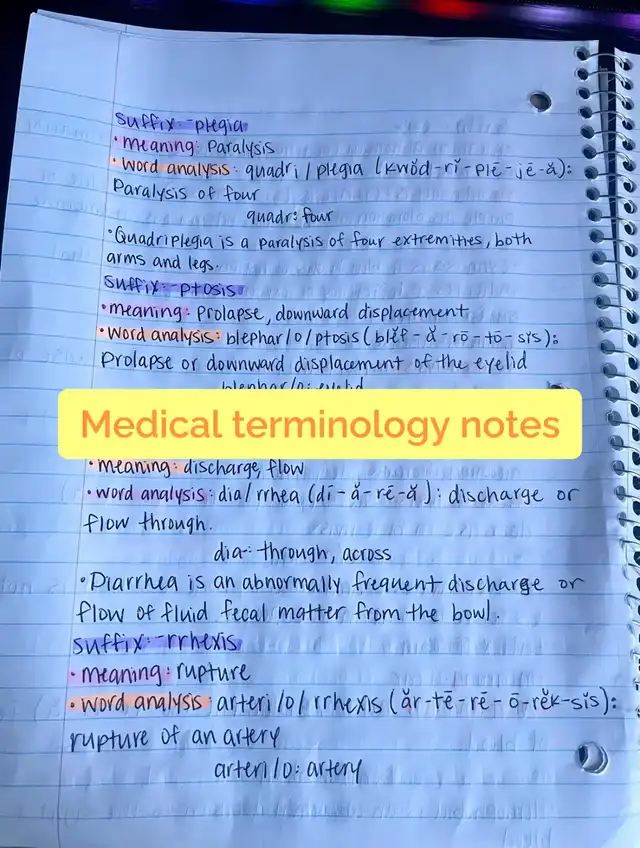 suffix: -plegia
• meaning: Paralysis
• word analysis: quadri/plegia (kwŏd-rĭ-plē-jē-ă):
Paralysis of four
quadr: four
• Quadriplegia is a paralysis of four extremities, both
arms and legs.
suffix: -ptosis
• meaning: prolapse, downward displacement
• word analysis: blephar/o/ptosis (blĕf-ă-rō-tō-sĭs):
Prolapse or downward displacement of the eyelid
blephar/o: eyelid
Medical terminology notes
• meaning: discharge, flow
• word analysis: dia/rrhea (dī-ă-rē-ă): discharge or
flow through.
dia-: through, across
• Diarrhea is an abnormally frequent discharge or
flow of fluid fecal matter from the bowl.
suffix: -rrhexis
• meaning: rupture
• word analysis: arteri/o/rrhexis (ăr-tē-rē-ō-rĕk-sĭs):
rupture of an artery
arteri/o: artery